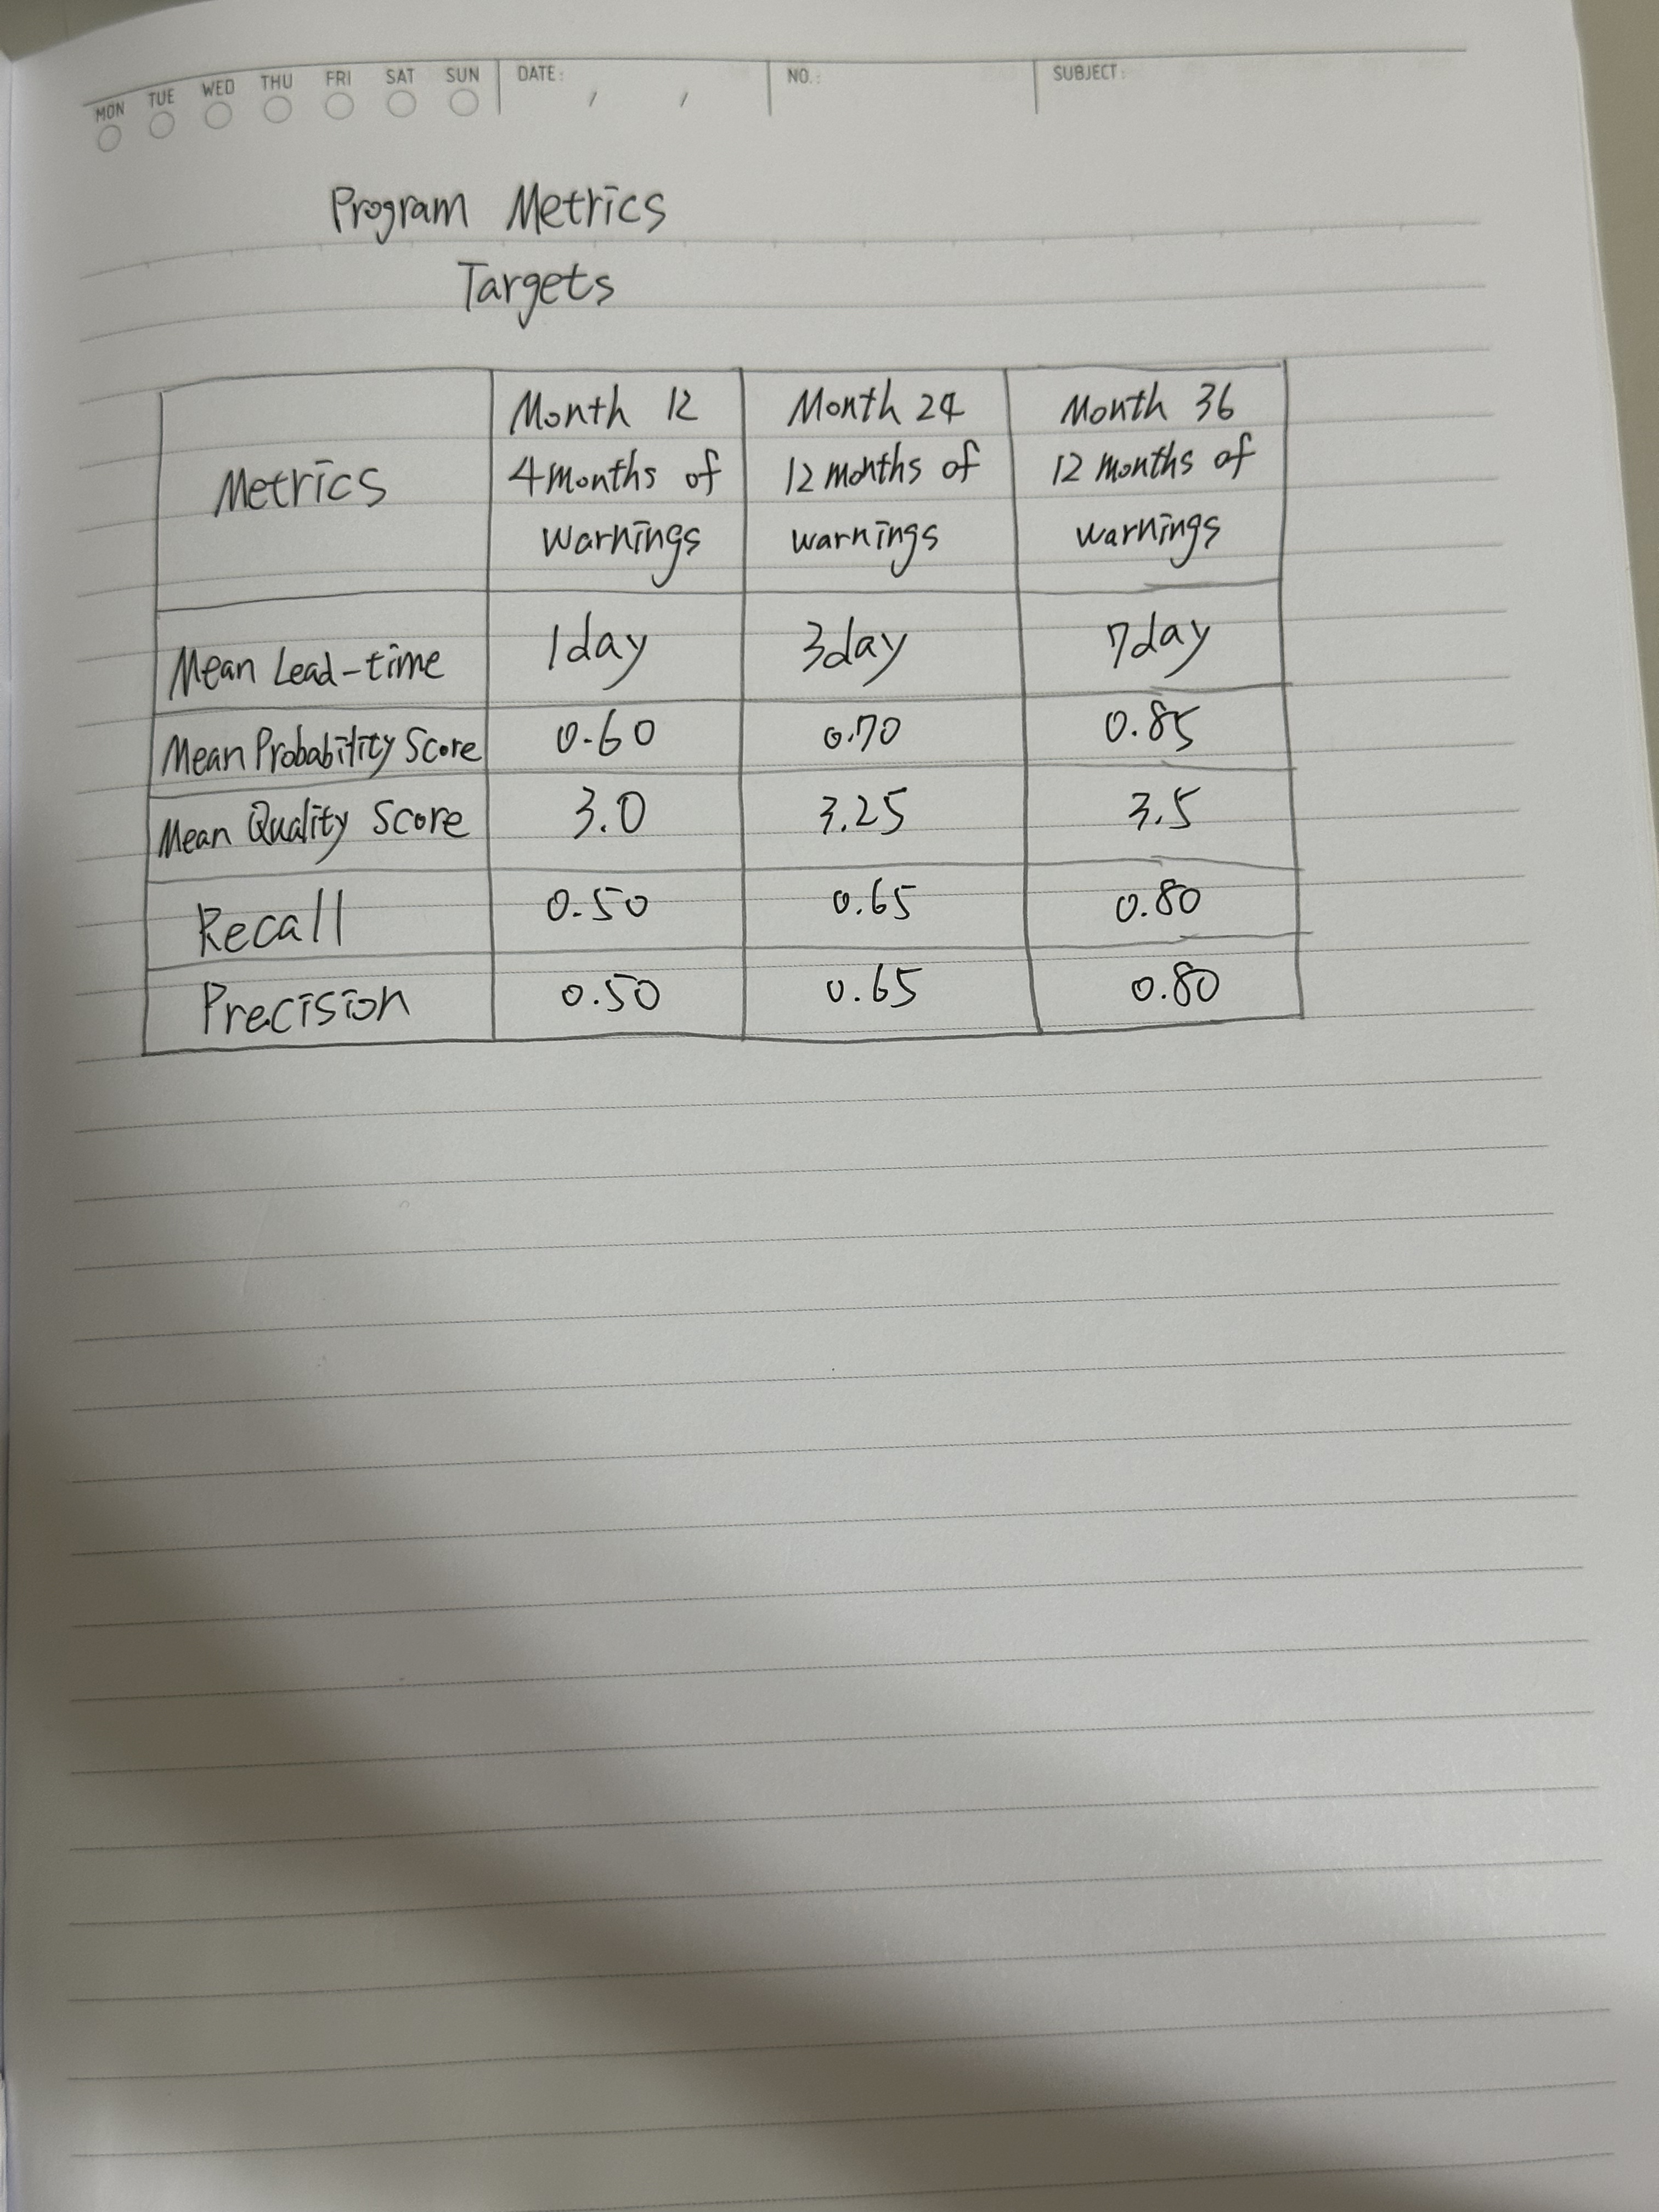 MON TUE WED THU FRI SAT SUN DATE: / / NO.: SUBJECT:
Program Metrics
Targets
Metrics
Month 12
4 months of
warnings
Month 24
12 months of
warnings
Month 36
12 months of
warnings
Mean Lead-time 1day 3day 7day
Mean Probability Score 0.60 0.70 0.85
Mean Quality Score 3.0 3.25 3.5
Recall 0.50 0.65 0.80
Precision 0.50 0.65 0.80